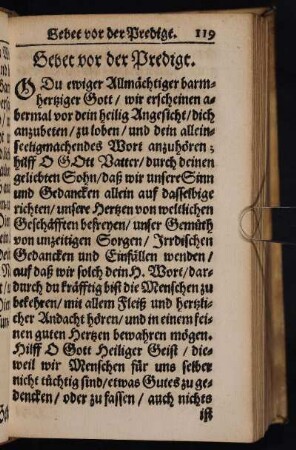 Gebet vor der Predigt. 119
Gebet vor der Predigt.
O Du ewiger Allmächtiger barm-
hertziger Gott / wir erscheinen a-
bermal vor dein heilig Angesicht / dich
anzubeten / zu loben / und dein allein-
seeligmachendes Wort anzuhören ;
hilff O GOtt Vatter / durch deinen
geliebten Sohn / daß wir unsere Sinn
und Gedancken allein auf dasselbige
richten / unsere Hertzen von weltlichen
Geschäfften befreyen / unser Gemüth
von unzeitigen Sorgen / Irrdischen
Gedancken und Einfällen wenden /
auf daß wir solch dein H. Wort / dar-
durch du kräfftig bist die Menschen zu
bekehren / mit allem Fleiß und hertzli-
cher Andacht hören / und in einem fei-
nen guten Hertzen bewahren mögen.
Hilff O Gott Heiliger Geist / die-
weil wir Menschen für uns selber
nicht tüchtig sind / etwas Gutes zu ge-
dencken / oder zu fassen / auch nichts
ist